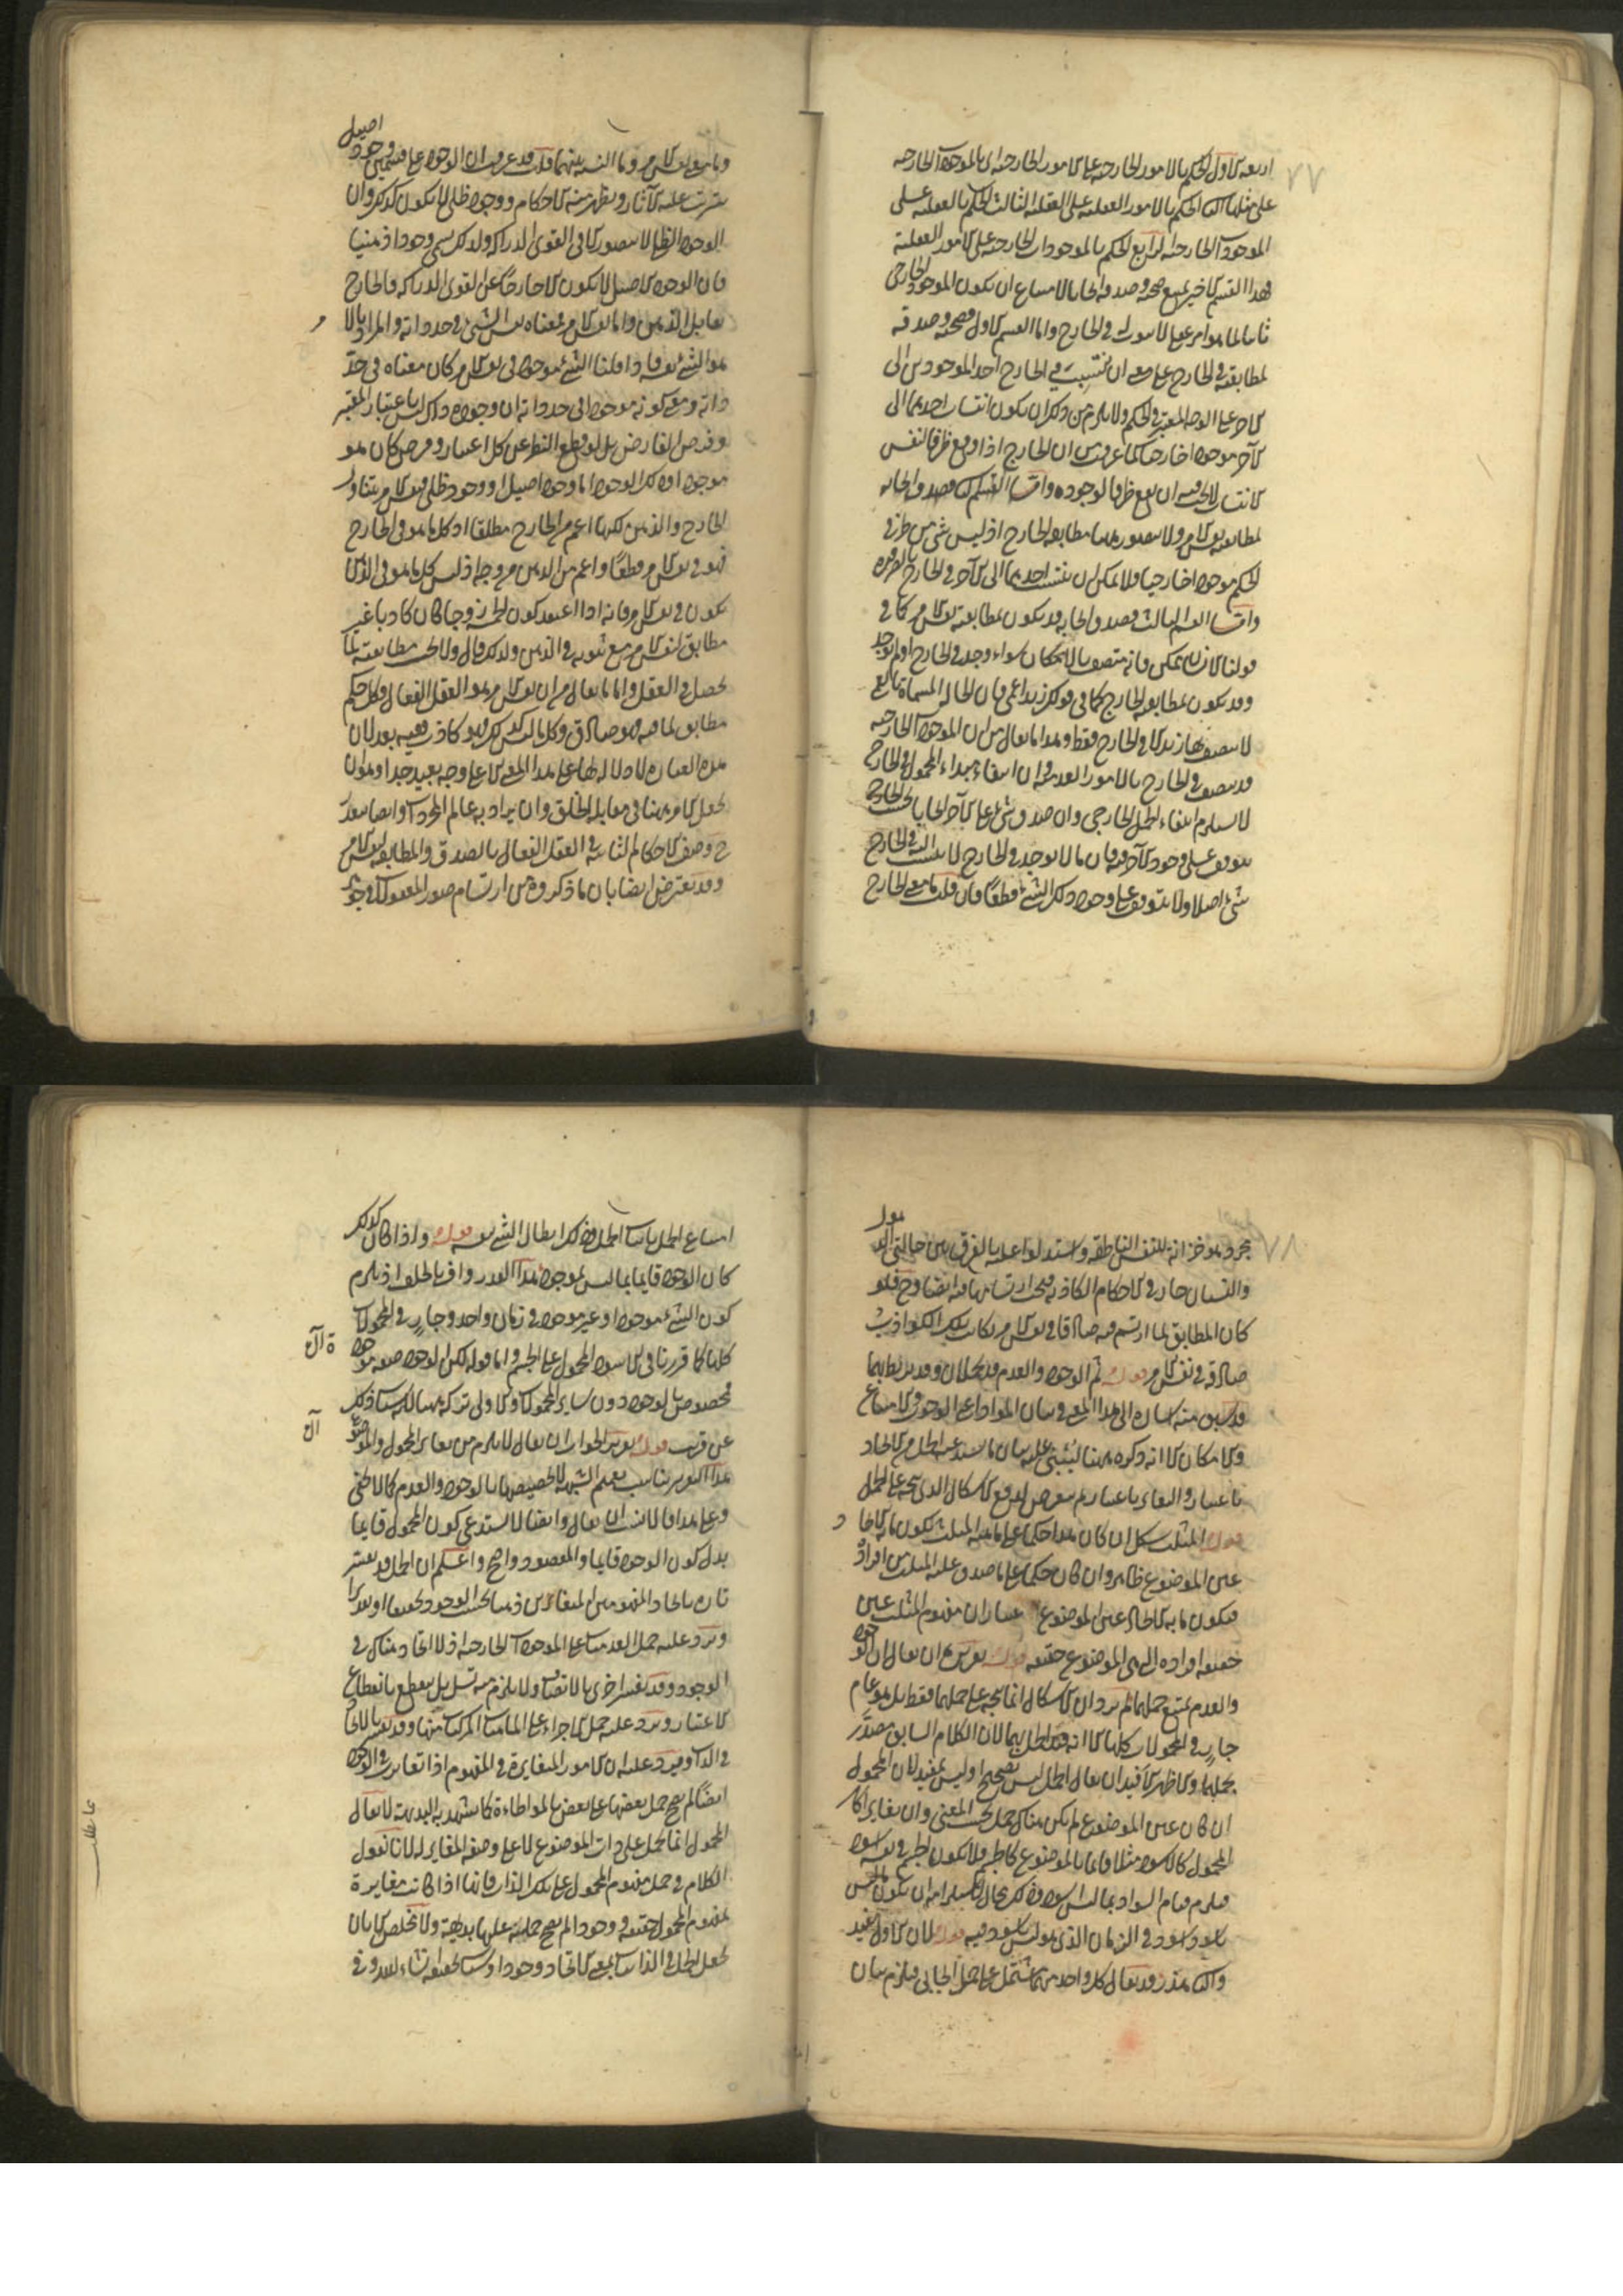 ٧٧
اربعة الاول الحكم بالامور الخارجية على الامور الخارجية اى بالموجودات الخارجية
على مثلها الثانى الحكم بالامور العقلية على العقلية الثالث الحكم بالعقلية على
الموجودات الخارجية الرابع الحكم بالموجودات الخارجية على الامور العقلية
فهذا القسم الاخير يمتنع صحته وصدقه ايجابا لامتناع ان يكون الموجود الخارجى
ثابتا لما هو امر عقلى لا ثبوت له فى الخارج واما القسم الاول فصحته وصدقه
لمطابقته فى الخارج على معنى ان ينتسب فى الخارج احد الموجودين الى
الآخر على الوجه المعتبر فى الحكم ولا يلزم من ذلك ان يكون انتساب احدهما الى
الآخر موجودا خارجيا لما عرفت من ان الخارج اذا وقع ظرفا لنفس
الانتساب لا يجب ان يقع ظرفا لوجوده واما القسم الثانى فصدق ايجابه
لمطابقته نفس الامر ولا يتصور هنا مطابقة الخارج اذ ليس شىء من طرفى
الحكم موجودا خارجيا ولا يمكن ان ينتسب احدهما الى الآخر فى الخارج بالضرورة
واما القسم الثالث فصدق ايجابه قد يكون بمطابقة نفس الامر كما فى
قولنا الانسان ممكن فانه متصف بالامكان سواء وجد فى الخارج او لم يوجد
وقد يكون بمطابقة الخارج كما فى قولك زيد اعمى فان الحال المسماة بالعمى
لا يتصف بها زيد الا فى الخارج فقط وهذا ما يقال من ان الموجودات الخارجية
قد يتصف فى الخارج بالامور العدمية وان انتفاء مبداء المحمول فى الخارج
لا يستلزم انتفاء الحمل الخارجى وان صدق شىء على الآخر ايجابا بحسب الخارج
يتوقف على وجود الآخر فيه فان ما لا يوجد فى الخارج لا ينتسب اليه فى الخارج
شىء اصلا ولا يتوقف على وجود ذلك الشىء قطعا فان قلت ما معنى الخارج
وما معنى نفس الامر وما النسبة بينهما قلت قد عرفت ان الوجود على قسمين وجود اصيل
يترتب عليه الآثار ويظهر منه الاحكام ووجود ظلى لا يكون كذلك وان
الوجود الظلى لا يتصور الا فى القوى الدراكة ولذلك يسمى وجودا ذهنيا
وان الوجود الاصيل لا يكون الا خارجا عن القوى الدراكة فالخارج
يقابل الذهن واما نفس الامر فمعناه نفس الشىء فى حد ذاته والمراد بالامر
هو الشىء نفسه فاذا قلنا الشىء موجود فى نفس الامر كان معناه فى حد
ذاته ومعنى كونه موجودا فى حد ذاته ان وجوده ذاك ليس باعتبار المعتبر
وفرض الفارض بل لو قطع النظر عن كل اعتبار وفرض كان هو
موجودا وذلك الوجود اما وجود اصيل او وجود ظلى فنفس الامر يتناول
الخارج والذهن لكنها اعم من الخارج مطلقا اذ كل ما هو فى الخارج
فهو فى نفس الامر قطعا واعم من الذهن من وجه اذ ليس كل ما هو فى الذهن
يكون فى نفس الامر فانه اذا اعتقد كون الخمسة زوجا كان كاذبا غير
مطابق لنفس الامر مع ثبوته فى الذهن ولذلك قال ولا يجب مطابقته لما
يحصل فى العقل واما ما يقال من ان نفس الامر هو العقل الفعال وكل حكم
مطابق لما فيه فهو صادق وكل ما ليس كذلك فهو كاذب ففيه بعد لان
هذه العبارة لا دلالة لها على هذا المعنى الا على وجه بعيد جدا وهو ان
يجعل الامر ههنا فى مقابلة الخلق وان يراد به عالم المجردات وايضا يتعذر
ح وصف الاحكام الثابتة فى العقل الفعال بالصدق والمطابقة لنفس الامر
وقد يعترض ايضا بان ما ذكروه من ارتسام صور المعقولات فى جوهر
٧٨
مجرد هو خزانة للنفس الناطقة واستدلوا عليه بالفرق بين حالتى الذهول
والنسيان جار فى الاحكام الكاذبة فيجب ارتسامها فيه ايضا وح فلو
كان المطابق لما ارتسم فيه صادقا فى نفس الامر لكانت تلك الكواذب
صادقة فى نفس الامر قوله ثم الوجود والعدم قد يحملان وقد يربط بهما
قد سبق منه اشارة الى هذا المعنى فى بيان المواد اعنى الوجوب والامتناع
والامكان الا انه ذكره ههنا ليبتنى عليه بيان ما يستدعيه الحمل من الاتحاد
باعتبار والتغاير باعتبار ثم يتعرض لدفع الاشكال الذى يتجه على الحمل
قوله المثلث شكل ان كان هذا حكما على ماهية المثلث يكون ما به الاتحاد
عين الموضوع ظاهر وان كان حكما على ما صدق عليه المثلث من افراده
فيكون ما به الاتحاد عين الموضوع باعتبار ان مفهوم المثلث عين
حقيقة افراده التى هى الموضوع حقيقة قوله تقريره ان يقال ان الوجود
والعدم يمتنع حملهما لم يرد ان الاشكال انما يتجه على حملهما فقط بل هو عام
جار فى المحمولات كلها الا انه قيد الحمل بهما لان الكلام السابق مصدر
بحملهما والاظهر الافيد ان يقال الحمل ليس بصحيح او ليس بمفيد لان المحمول
ان كان عين الموضوع لم يكن هناك حمل بحسب المعنى وان تغايرا كان
المحمول كالاسود مثلا قائما بالموضوع كالجسم فلا يكون الجسم فى نفسه اسود
فيلزم قيام السواد بما ليس باسود وذلك محال لاستلزامه ان يكون ما ليس
باسود اسود فى الزمان الذى هو ليس باسود فيه قوله لان الاول يفيد
والثانى هذر وقد يقال كل واحد منهما يشتمل على حمل ايجابى فيلزم بيان
امتناع الحمل باثبات الحمل وذلك ابطال الشىء بنفسه قوله واذا كان كذلك
كان الوجود قائما بما ليس بموجود هذا القدر واف بالخلف اذ يلزم
كون الشىء موجودا وغير موجود فى زمان واحد وجار فى المحمولات
كلها كما قررنا فى الاسود المحمول على الجسم واما قوله لكن الوجود صفة موجودة
فمخصوص بالوجود دون ساير المحمولات والاولى تركه ههنا لكنه سيأتى ذلك
عن قريب قوله تقرير الجواب ان يقال لا يلزم من تغاير المحمول والموضوع
هذا التقرير يناسب تعميم الشبهة لا تخصيصها بالوجود والعدم كما لا يخفى
وعلى هذا فالانسب ان يقال وايضا لا يستدعى كون المحمول قائما
بدل كون الوجود قائما والمقصود واضح واعلم ان الحمل قد يفسر
تارة باتحاد المفهومين المتغايرين ذهنا بحسب الوجود تحقيقا او تقديرا
ويرد عليه حمل العدميات على الموجودات الخارجية اذ لا اتحاد هناك فى
الوجود وقد يفسر اخرى بالاتصاف ولا يلزم منه تسلسل ينقطع بانقطاع
الاعتبار ويرد عليه حمل الاجزاء على الماهيات المركبة منها وقد يفسر بالاتحاد
فى الذات ويرد عليه ان الامور المتغايرة فى المفهوم اذا تغايرت فى الوجود
ايضا لم يصح حمل بعضها على بعض بالمواطاة كما يشهد به البديهة لا يقال
المحمول انما يحمل على ذات الموضوع لا على وصفه المغاير له لانا نقول
الكلام فى حمل مفهوم المحمول على تلك الذات فانها اذا كانت مغايرة
لمفهوم المحمول حقيقة ووجودا لم يصح حمله عليها بديهة ولا مخلص الا بان
يجعل الحمل فى الذاتيات بمعنى الاتحاد وجودا